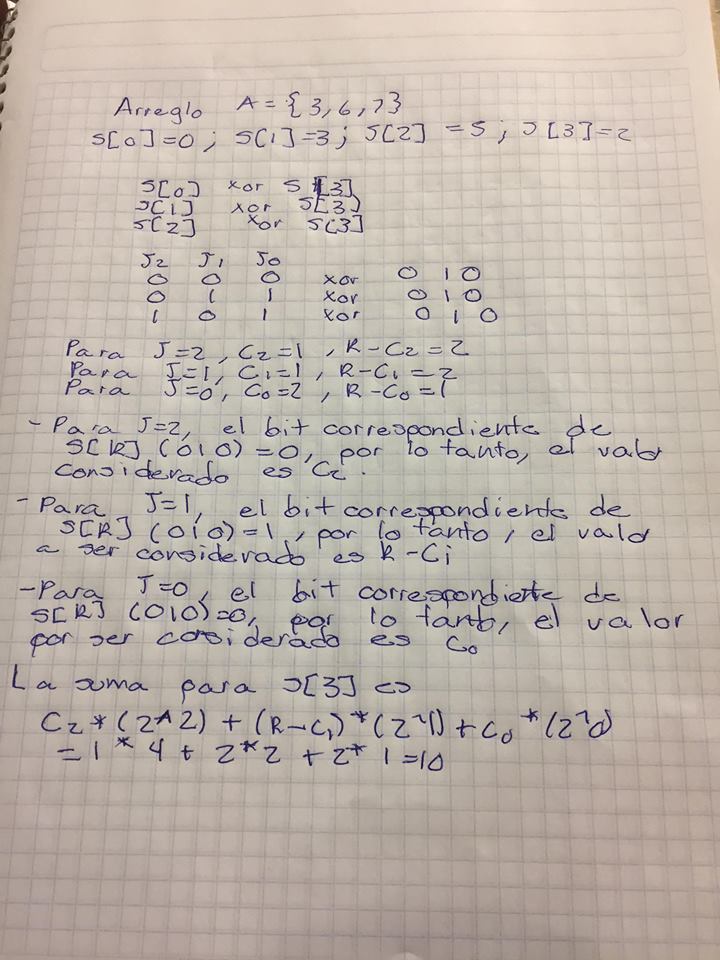 Arreglo A = {3,6,7}
S[0]=0; S[1]=3; S[2] =5; S[3]=2
S[0] xor S[3]
S[1] xor S[3]
S[2] xor S[3]
J2 J1 J0
0 0 0 xor 0 1 0
0 1 1 xor 0 1 0
1 0 1 xor 0 1 0
Para J=2, C2=1, R-C2=2
Para J=1, C1=1, R-C1=2
Para J=0, C0=2, R-C0=1
- Para J=2, el bit correspondiente de
S[R] (010)=0, por lo tanto, el valor
considerado es C2.
- Para J=1, el bit correspondiente de
S[R] (010)=1, por lo tanto, el valor
a ser considerado es R-Ci
- Para J=0, el bit correspondiente de
S[R] (010)=0, por lo tanto, el valor
por ser considerado es C0
La suma para S[3] es
C2*(2^2)+(R-C1)*(2^1)+C0*(2^0)
=1*4+2*2+2*1=10